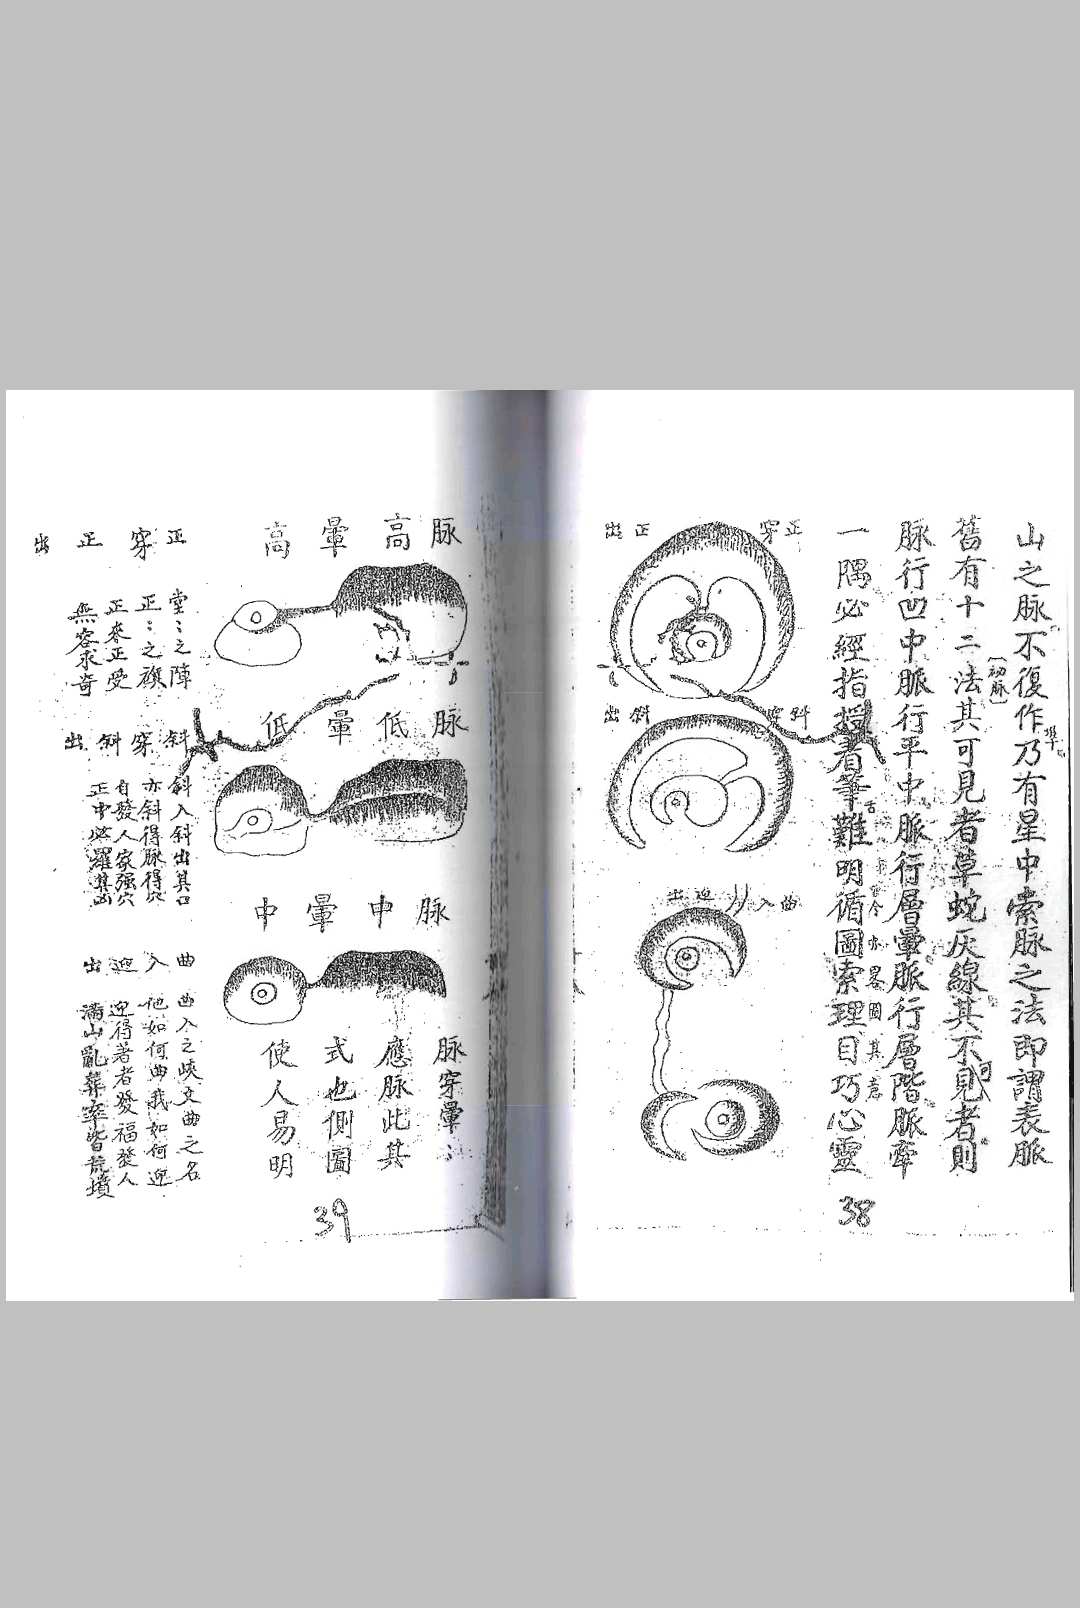 山之脉不復作乃有星中索脉之法即謂表脈
舊有十二法其可見者草蛇灰線其不見者則
(初脉)
脈行凹中脈行平中脈行層暈脈行層階脈牽
一隅必經指授者筆難明循圖索理目巧心靈
言
今亦畧圖其意
正穿
正出
斜穿
斜出
曲入
迎出
38
脉高暈高
脉低暈低
脉中暈中
脉穿暈:
應脉此其
式也側圖
使人易明
正穿正出
堂:之陣
正:之旗
正來正受
無容求奇
斜穿斜出
斜入斜出其口
亦斜得脉得穴
自發人家強穴
正中必羅其凶
曲入迎出
曲入之峽文曲之名
他如何曲我如何迎
迎得著者發福發人
滿山亂葬率皆荒墳
39